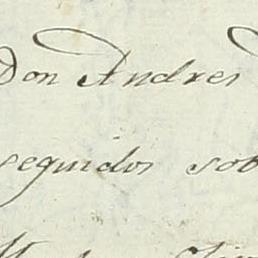 Don Andres
seguidos sob